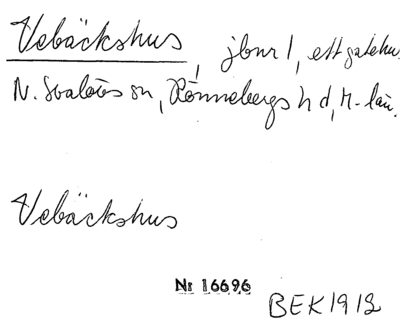 Vebäckshus, jbnr 1, ett gatehus
N. Svalövs sn, Rönnebergs hd, M-län.
Vebäckshus
Nr 16696
BEK 1912